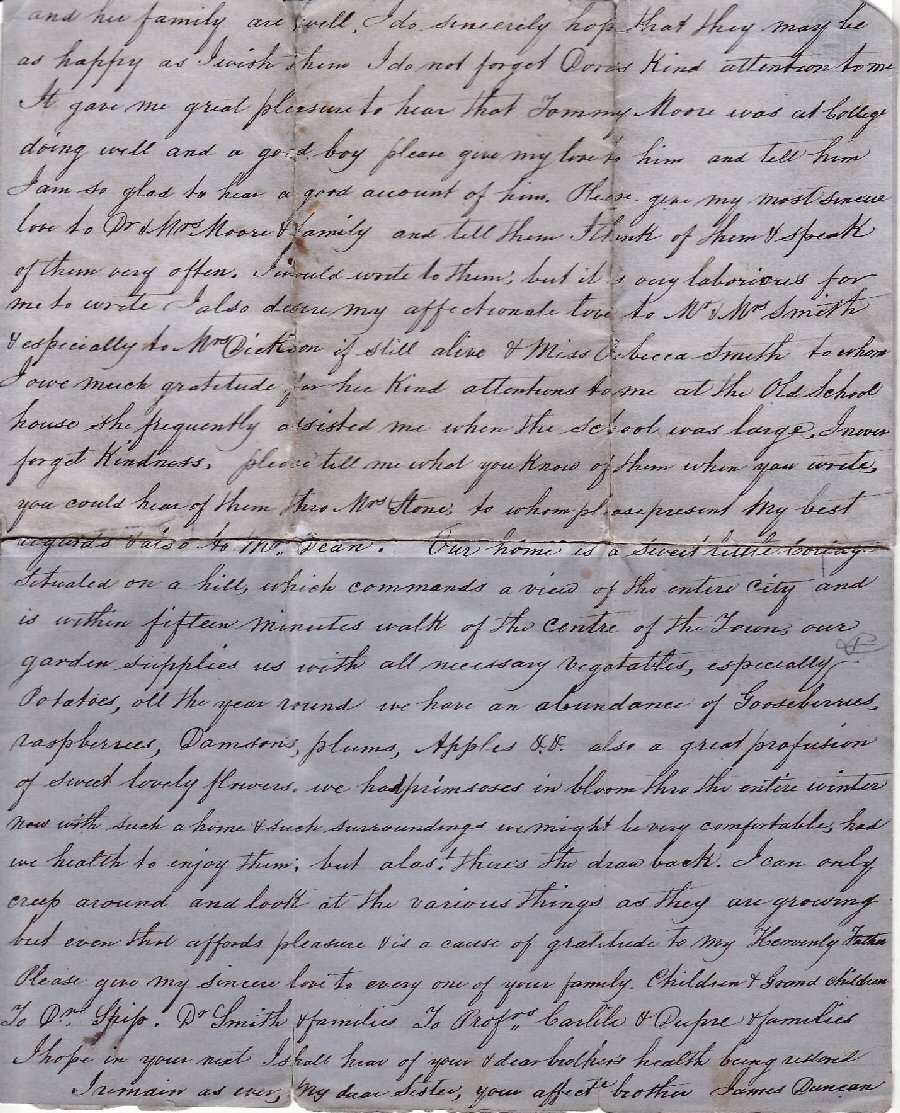 and her family are well. I do sincerely hope that they may be
as happy as I wish them I do not forget Doras Kind attention to me
It gave me great pleasure to hear that Tommy Moore was at College
doing well and a good boy please give my love to him and tell him
I am so glad to hear a good account of him. Please give my most sincere
love to Dr & Mrs Moore & family and tell them I think of them & speak
of them very often. I would write to them, but it is very laborious for
me to write I also desire my affectionate love to Mr & Mrs Smith
& especially to Mrs Dickson if still alive & Miss Rebecca Smith to whom
I owe much gratitude for her Kind attentions to me at the Old School
house she frequently assisted me when the School was large, I never
forget Kindness. please tell me what you Know of them when you write,
you could hear of them thro Mrs Stone, to whom please present My best
regards & also to Mr. Dean. Our home is a sweet little
Situated on a hill, which commands a view of the entire city and
is within fifteen minutes walk of the centre of the Town, our
garden supplies us with all necessary vegatables, especially
Potatoes, all the year round we have an abundance of Gooseberries,
raspberries, Damsons, plums, Apples &.&. also a great profusion
of sweet lovely flowers. we had primsoses in bloom thro the entire winter
now with such a home & such surroundings we might be very comfortable, had
we health to enjoy them, but alas! there's the draw back. I can only
creep around and look at the various things as they are growing
but even that affords pleasure & is a cause of gratitude to my Heavenly Father
Please give my sincere love to every one of your family. Children & Grand children
To Dr. Ship. Dr Smith & families To Profrs Carlile & Dupre & families
I hope in your next I shall hear of your & dear brothers health being restored
I remain as ever, My dear Sister, your affecte brother James Duncan